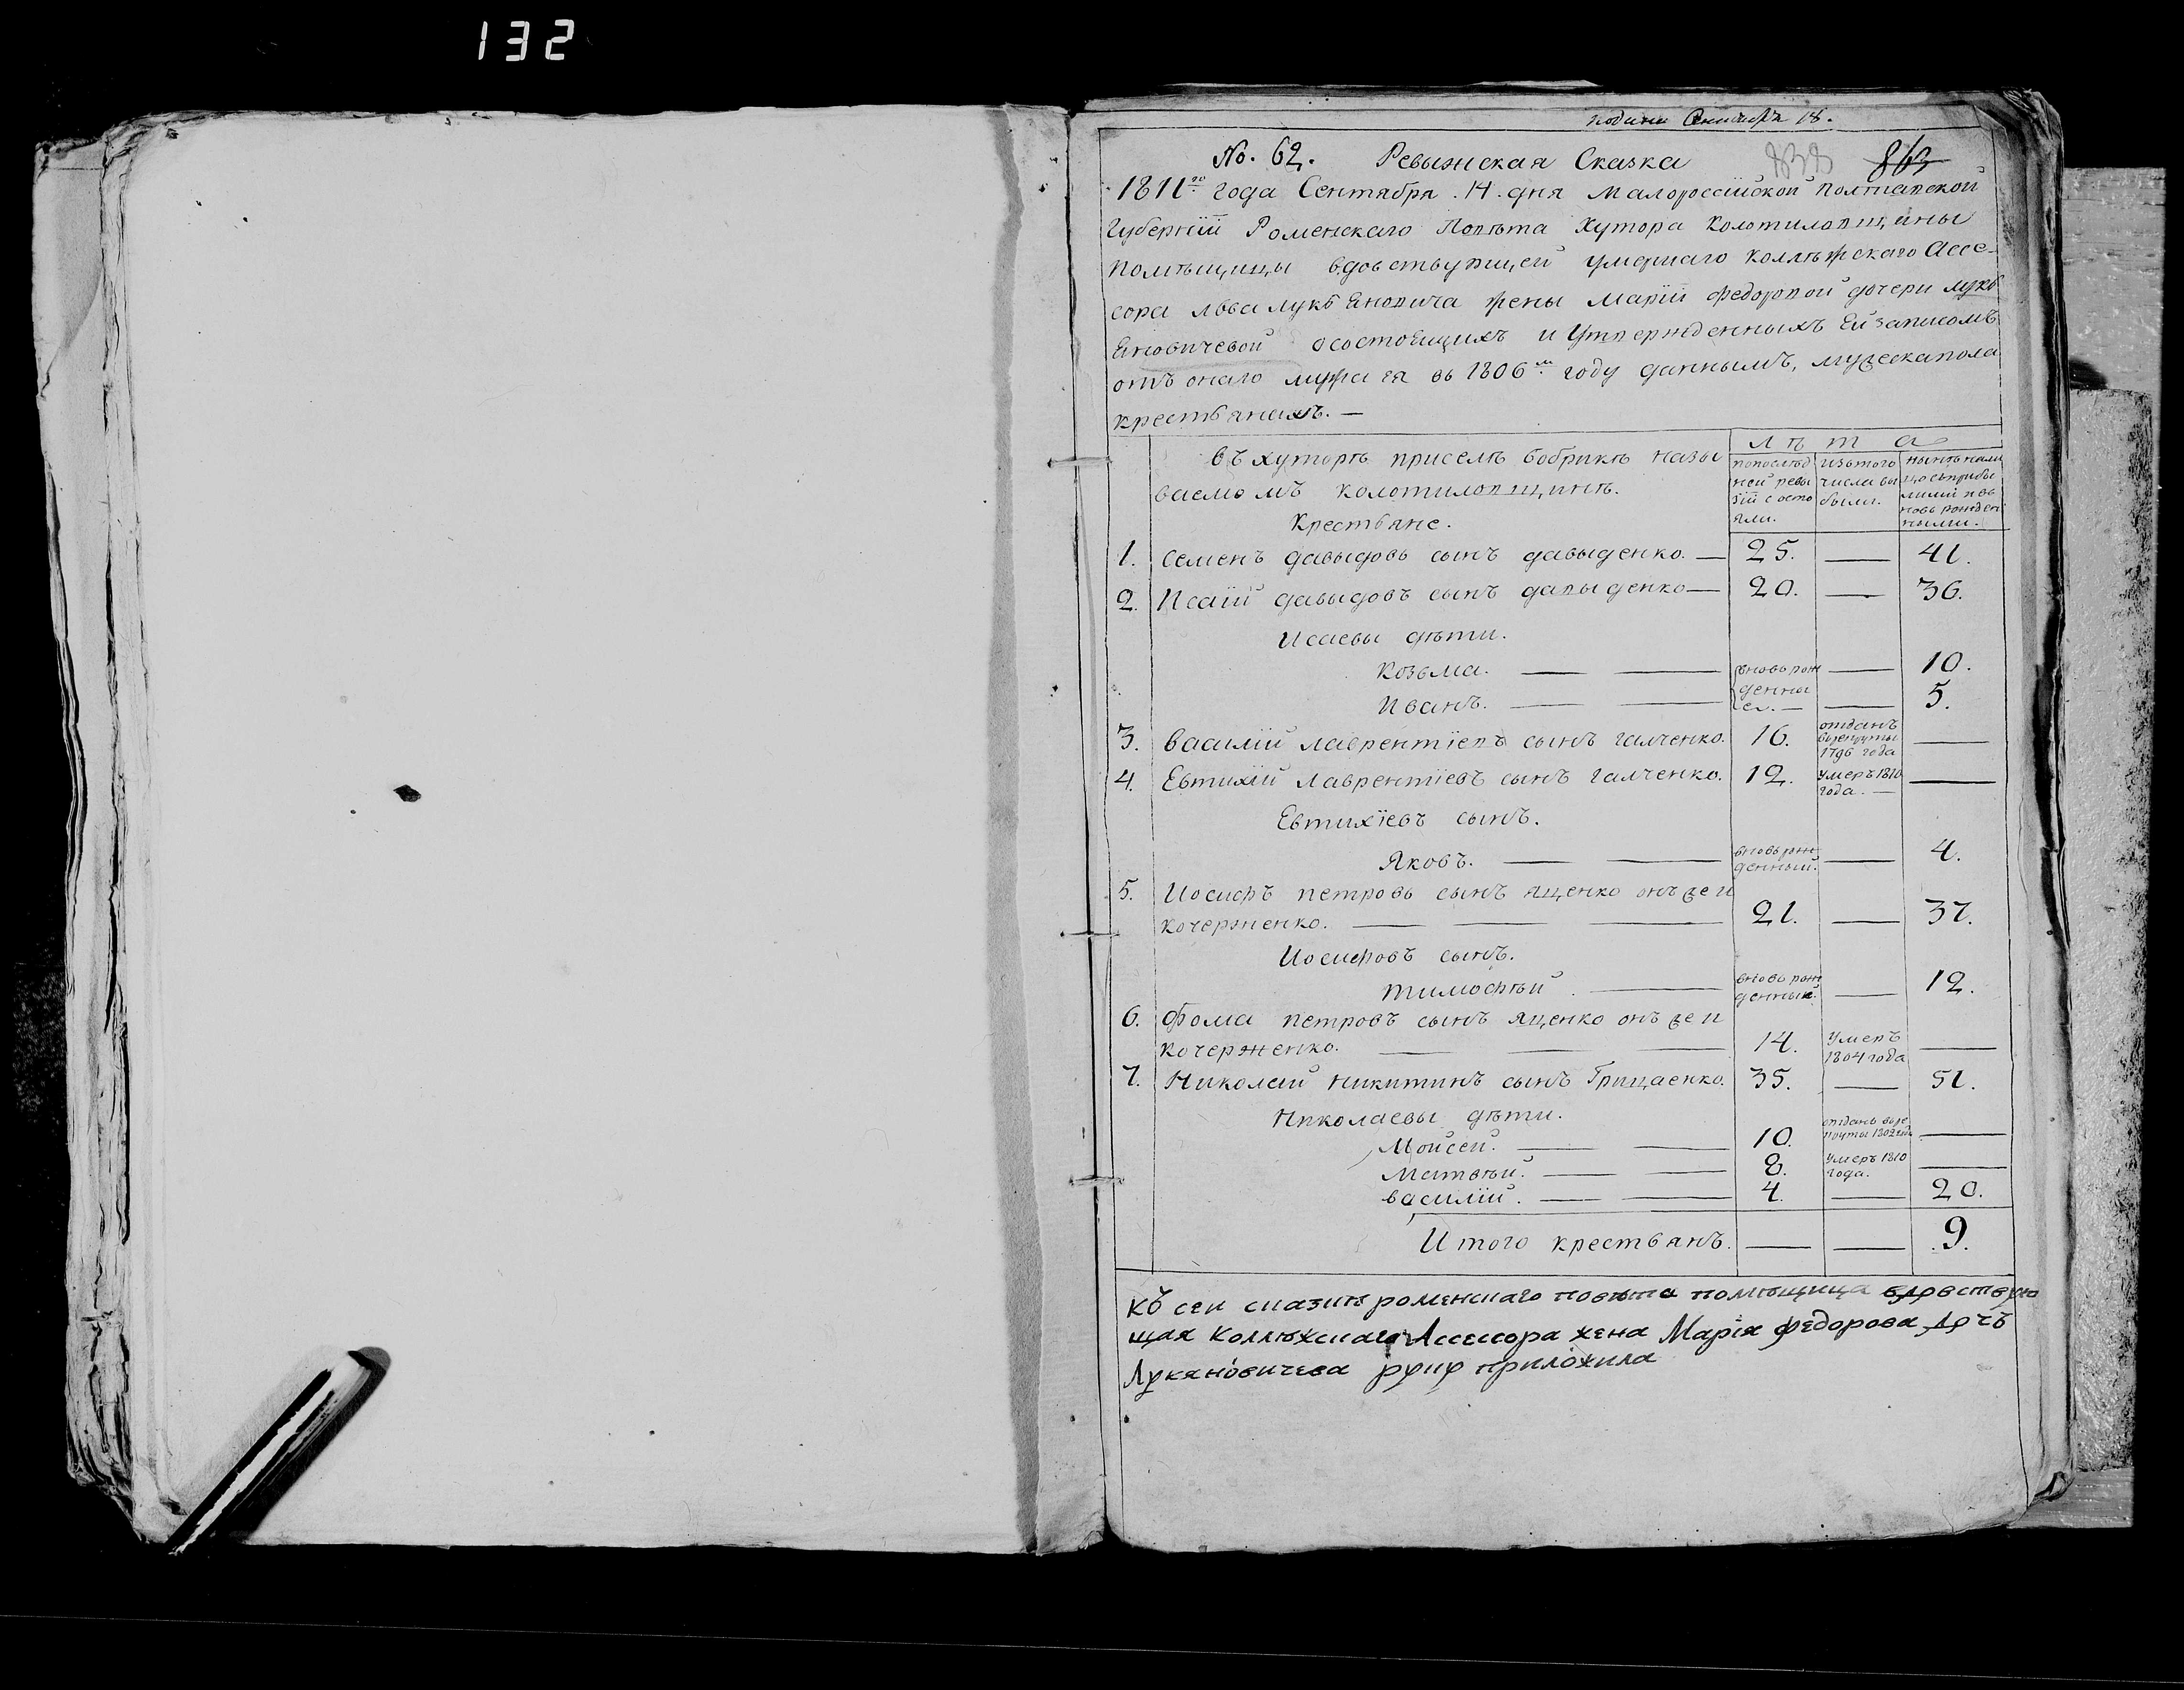 132
Сентября 18.
No. 62. Ревыжская Сказка 863
1811го года Сентября .14. дня Малороссійской Полтавской
Губерніи Роменскаго Повѣта Хутора Колотиловщины
Помѣщицы вдовствующей умершаго Коллѣжскаго Ассе-
сора Льва Лукьяновича жены Маріи Федоровой дочери Лукь
яновичевой осостоящихъ и Утвержденныхъ Ей записомъ
отъ онаго мужа ея въ 1806м году даннымъ, мужескапола
крестьянахъ. —
Въ хуторѣ приселѣ Бобрикѣ назы
ваемомъ Колотиловщинѣ.
Крестьяне.
Лѣта
попослѣд
ней реви
зіи состо
яли.
изътого
числа вы
было.
нынѣ нали
цо съприбы
лими и въ
новь рожден
ными.
1. Семенъ Давыдовъ сынъ Давыденко. — 25. — 41.
2. Исаій Давыдовъ сынъ Давыденко — 20. — 36.
Исаевы дѣти.
Козьма. — — вновь рож — 10.
Иванъ. — — денны
ея. — — 5.
3. Василій Лаврентіевъ сынъ Галченко. 16. отданъ
врекруты
1796 года —
4. Евтихій Лаврентіевъ сынъ Галченко. 12. умеръ 1810
года. — —
Евтихіевъ сынъ.
Яковъ. — — вновь рож
денный. — 4.
5. Иосифъ Петровъ сынъ Яценко онъ же и
Кочерженко. — — — 21. — 37.
Иосифовъ сынъ.
Тимофѣй. — вновь рож
денный. — 12.
6. Фома Петровъ сынъ Яценко онъ же и
Кочерженко. — — 14. Умеръ
1804 года —
7. Николай Никитинъ сынъ Грицаенко. 35. — 51.
Николаевы дѣти.
Мойсей. — — 10. отданъ врек
руты 1802 года —
Матвѣй. — — 8. Умеръ 1810
года. —
Василій. — — 4. — 20.
Итого крестьянъ. — — .9.
Къ сеи сказки роменскаго повѣта помѣщица вдовствую
щая Коллѣжскаго Ассесора жена Марія Федорова дочъ
Лукяновичева руку приложила